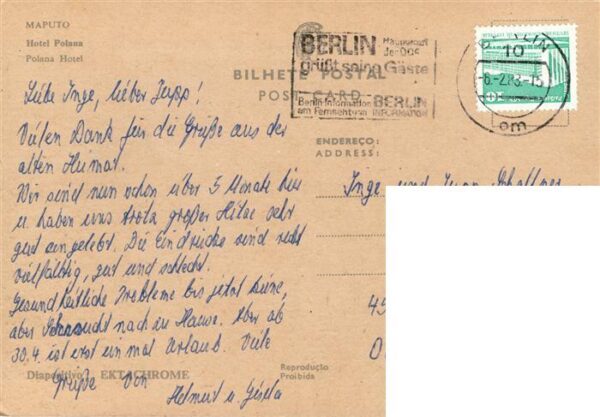 MAPUTO
Hotel Polana
Polana Hotel
BERLIN Hauptstadt
der DDR
grüßt seine Gäste
Berlin-Information BERLIN
am Fernsehturm INFORMATION
BERLIN
10
-6.-2.83-15
om
BILHETE POSTAL
POST CARD
ENDEREÇO:
ADDRESS:
Liebe Inge, lieber Jupp!
Vielen Dank für die Grüße aus der
alten Heimat.
Wir sind nun schon über 5 Monate hier
u. haben uns trotz großer Hitze sehr
gut eingelebt. Die Eindrücke sind recht
vielfältig, gut und schlecht.
Gesundheitliche Probleme bis jetzt keine,
aber Sehnsucht nach zu Hause. Aber ab
30.4. ist erst einmal Urlaub. Viele
Grüße von
Helmut u. Gisela
Inge und
Diapositivo EKTACHROME
Reprodução
Proibida